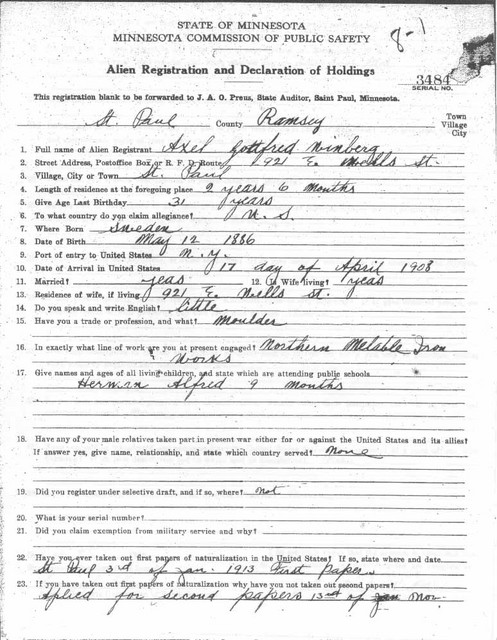 8-1
STATE OF MINNESOTA
MINNESOTA COMMISSION OF PUBLIC SAFETY
Alien Registration and Declaration of Holdings
3484
SERIAL NO.
This registration blank to be forwarded to J. A. O. Preus, State Auditor, Saint Paul, Minnesota.
St. Paul County Ramsey Town
Village
City
1. Full name of Alien Registrant Axel Gottfred Winberg
2. Street Address, Postoffice Box or R. F. D. Route 921 E. Wells St.
3. Village, City or Town St. Paul
4. Length of residence at the foregoing place 2 years 6 months
5. Give Age Last Birthday 31 years
6. To what country do you claim allegiance? U. S.
7. Where Born Sweden
8. Date of Birth May 12 1886
9. Port of entry to United States N. Y.
10. Date of Arrival in United States 17 day of April 1908
11. Married? yeas 12. Is Wife living? yeas
13. Residence of wife, if living 921 E. Wells St.
14. Do you speak and write English? little
15. Have you a trade or profession, and what? Moulder
16. In exactly what line of work are you at present engaged? Northern Melable Iron
Works
17. Give names and ages of all living children, and state which are attending public schools.
Herman Alfred 9 months
18. Have any of your male relatives taken part in present war either for or against the United States and its allies?
If answer yes, give name, relationship, and state which country served? None
19. Did you register under selective draft, and if so, where? not
20. What is your serial number?
21. Did you claim exemption from military service and why?
22. Have you ever taken out first papers of naturalization in the United States? If so, state where and date
St Paul 3rd of Jan. 1913 First Papers
23. If you have taken out first papers of naturalization why have you not taken out second papers?
Aplied for second papers 13 of Jan Mor